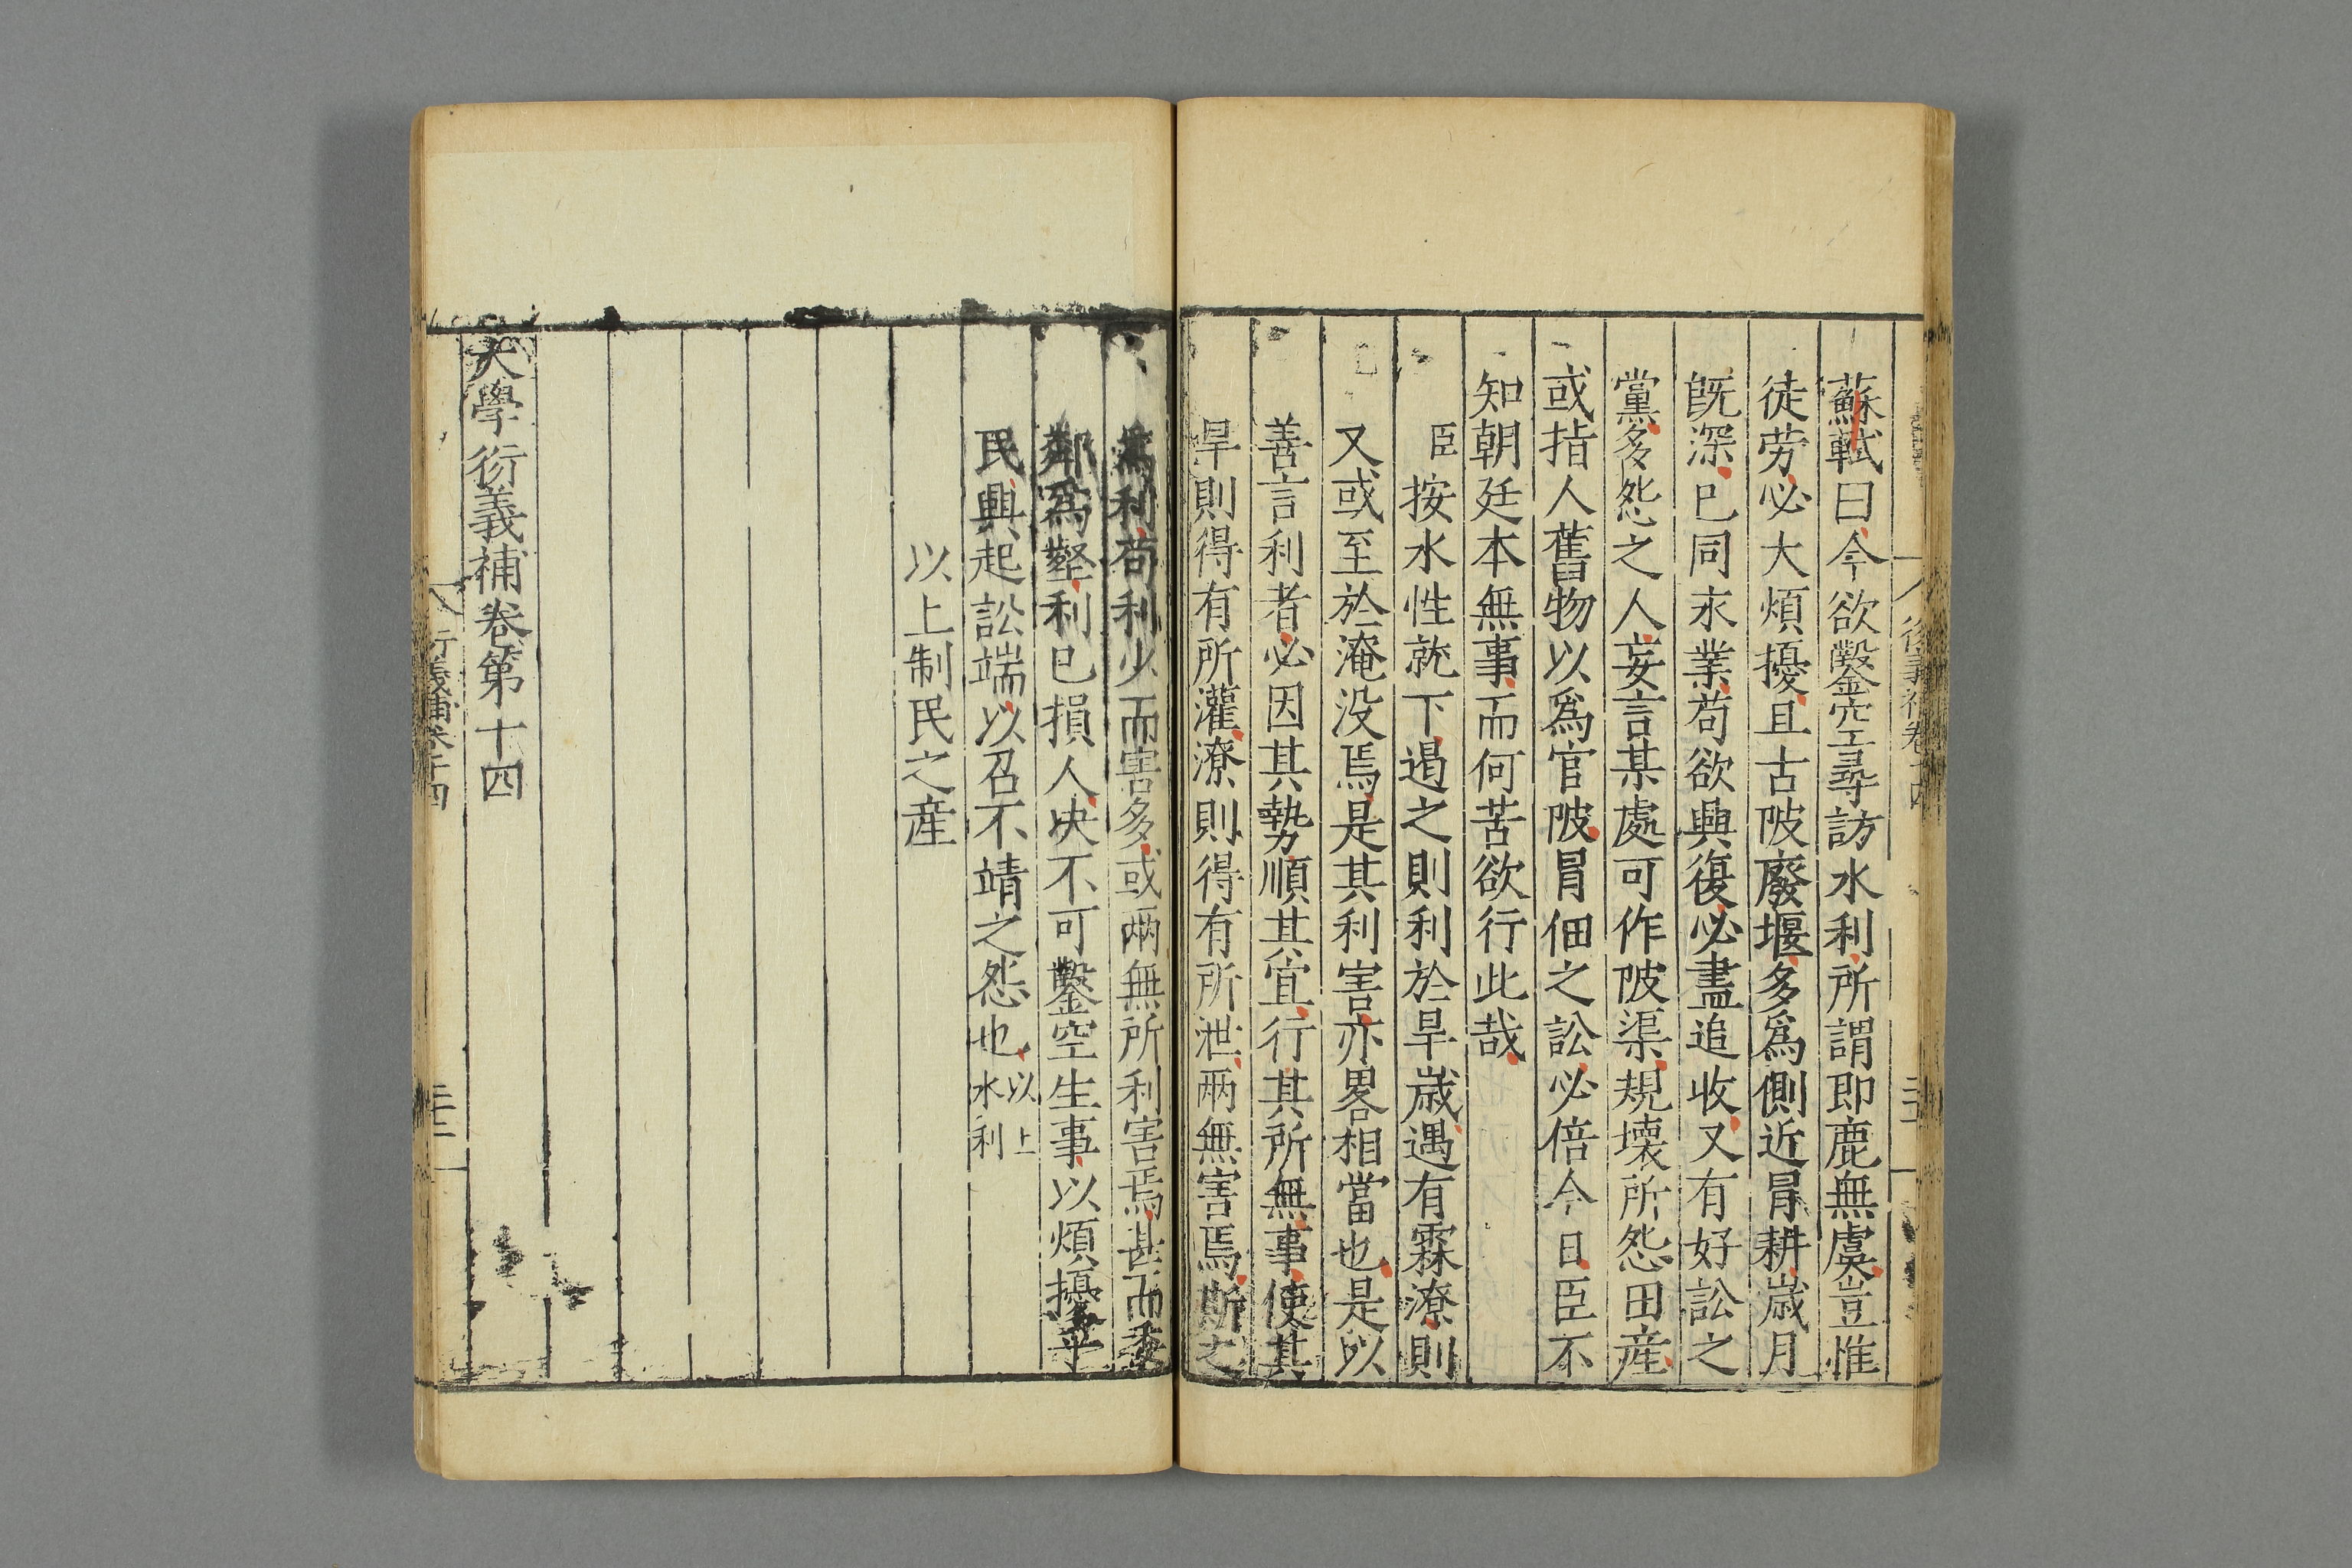 蘇軾曰今欲鑿空尋訪水利所謂即鹿無虞豈惟
徒劳必大煩擾且古陂廢堰多爲側近冒耕歳月
旣深已同永業苟欲興復必盡追收又有好訟之
黨多怨之人妄言某處可作陂渠規壊所怨田産
或指人舊物以爲官陂冒佃之訟必倍今日臣不
知朝廷本無事而何苦欲行此哉
臣按水性就下遏之則利於旱歳遇有霖潦則
又或至於淹没焉是其利害亦畧相當也是以
善言利者必因其勢順其宜行其所無事使其
旱則得有所灌潦則得有所泄兩無害焉斯之
爲利苟利少而害多或兩無所利害焉甚而委
鄰爲壑利已損人决不可鑿空生事以煩擾平
民興起訟端以召不靖之怨也以上水利
以上制民之産
大學衍義補卷第十四
衍義補卷十四